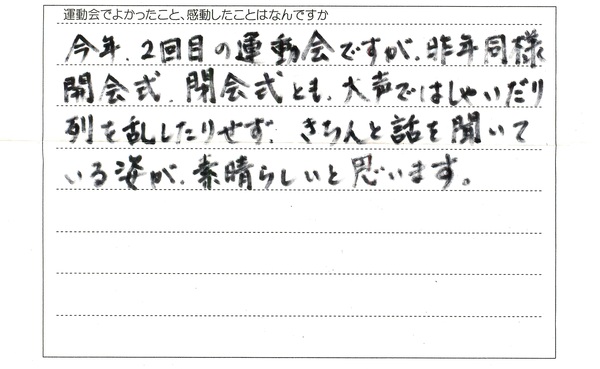 運動会でよかったこと、感動したことはなんですか
今年、2回目の運動会ですが、昨年同様
開会式、閉会式とも、大声ではしゃいだり
列を乱したりせず、きちんと話を聞いて
いる姿が、素晴らしいと思います。